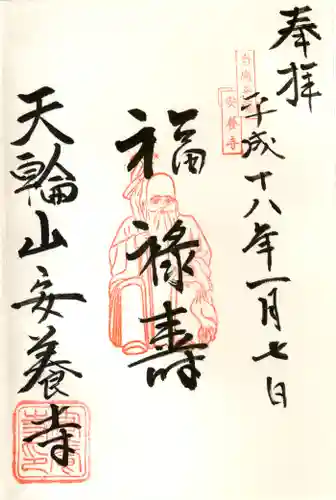 奉拝
平成十八年一月七日
福禄寿
天輪山安養寺
安養寺